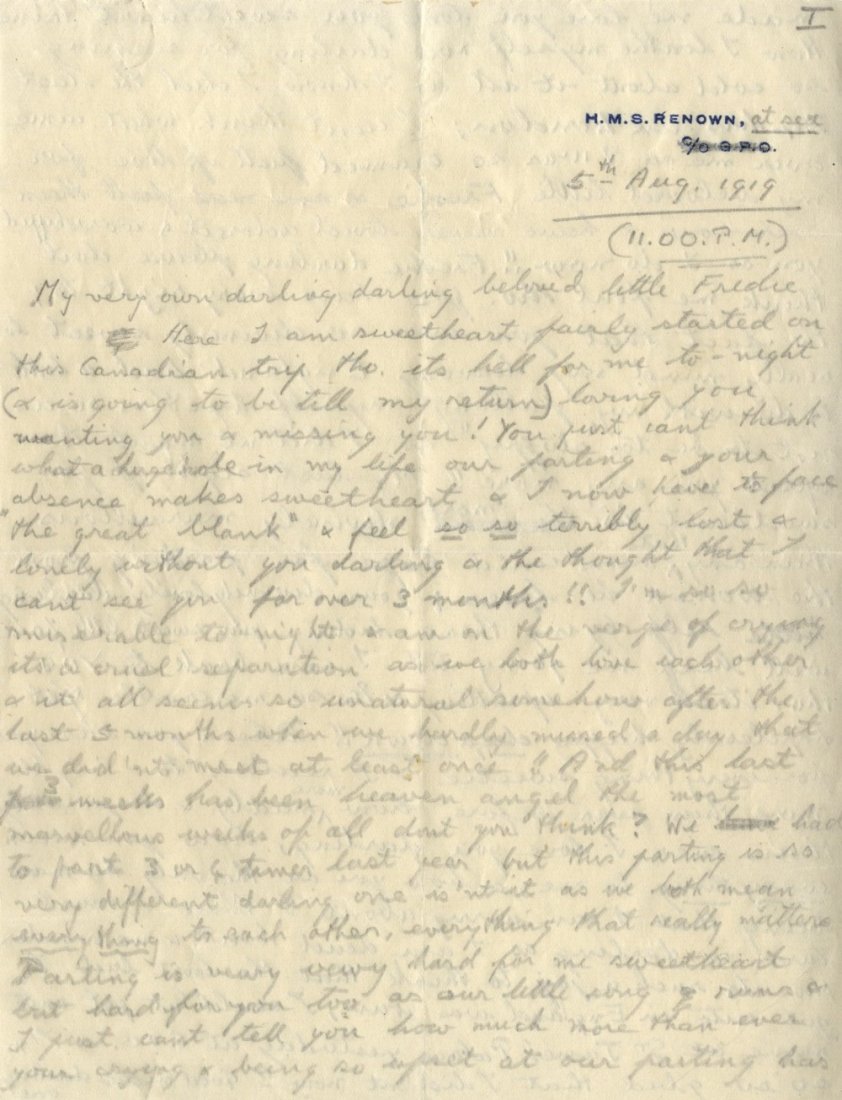 I
H.M.S. RENOWN, at sea
c/o G.P.O.
5th Aug. 1919
(11.00. P.M.)
My very own darling darling beloved little Fredie
Here I am sweetheart fairly started on
this Canadian trip tho. its hell for me to-night
(& is going to be till my return) loving you
wanting you & missing you! You just cant think
what a huge hole in my life our parting & your
absence makes sweetheart & I now have to face
"the great blank" & feel so so terribly lost &
lonely without you darling & the thought that I
cant see you for over 3 months!! I'm so so
miserable to night & am on the verge of crying
its a cruel separation as we both love each other
& it all seems so unatural somehow after the
last 5 months when we hardly missed a day that
we did'nt meet at least once!! And this last
3 weeks has been heaven angel the most
marvellous weeks of all dont you think? We had
to part 3 or 4 times last year but this parting is so
very different darling one is'nt it as we both mean
everything to each other, everything that really matters
Parting is vewy vewy hard for me sweetheart
but hard for you too as our little song &
I just cant tell you how much more than ever
your crying & being so upset at our parting has